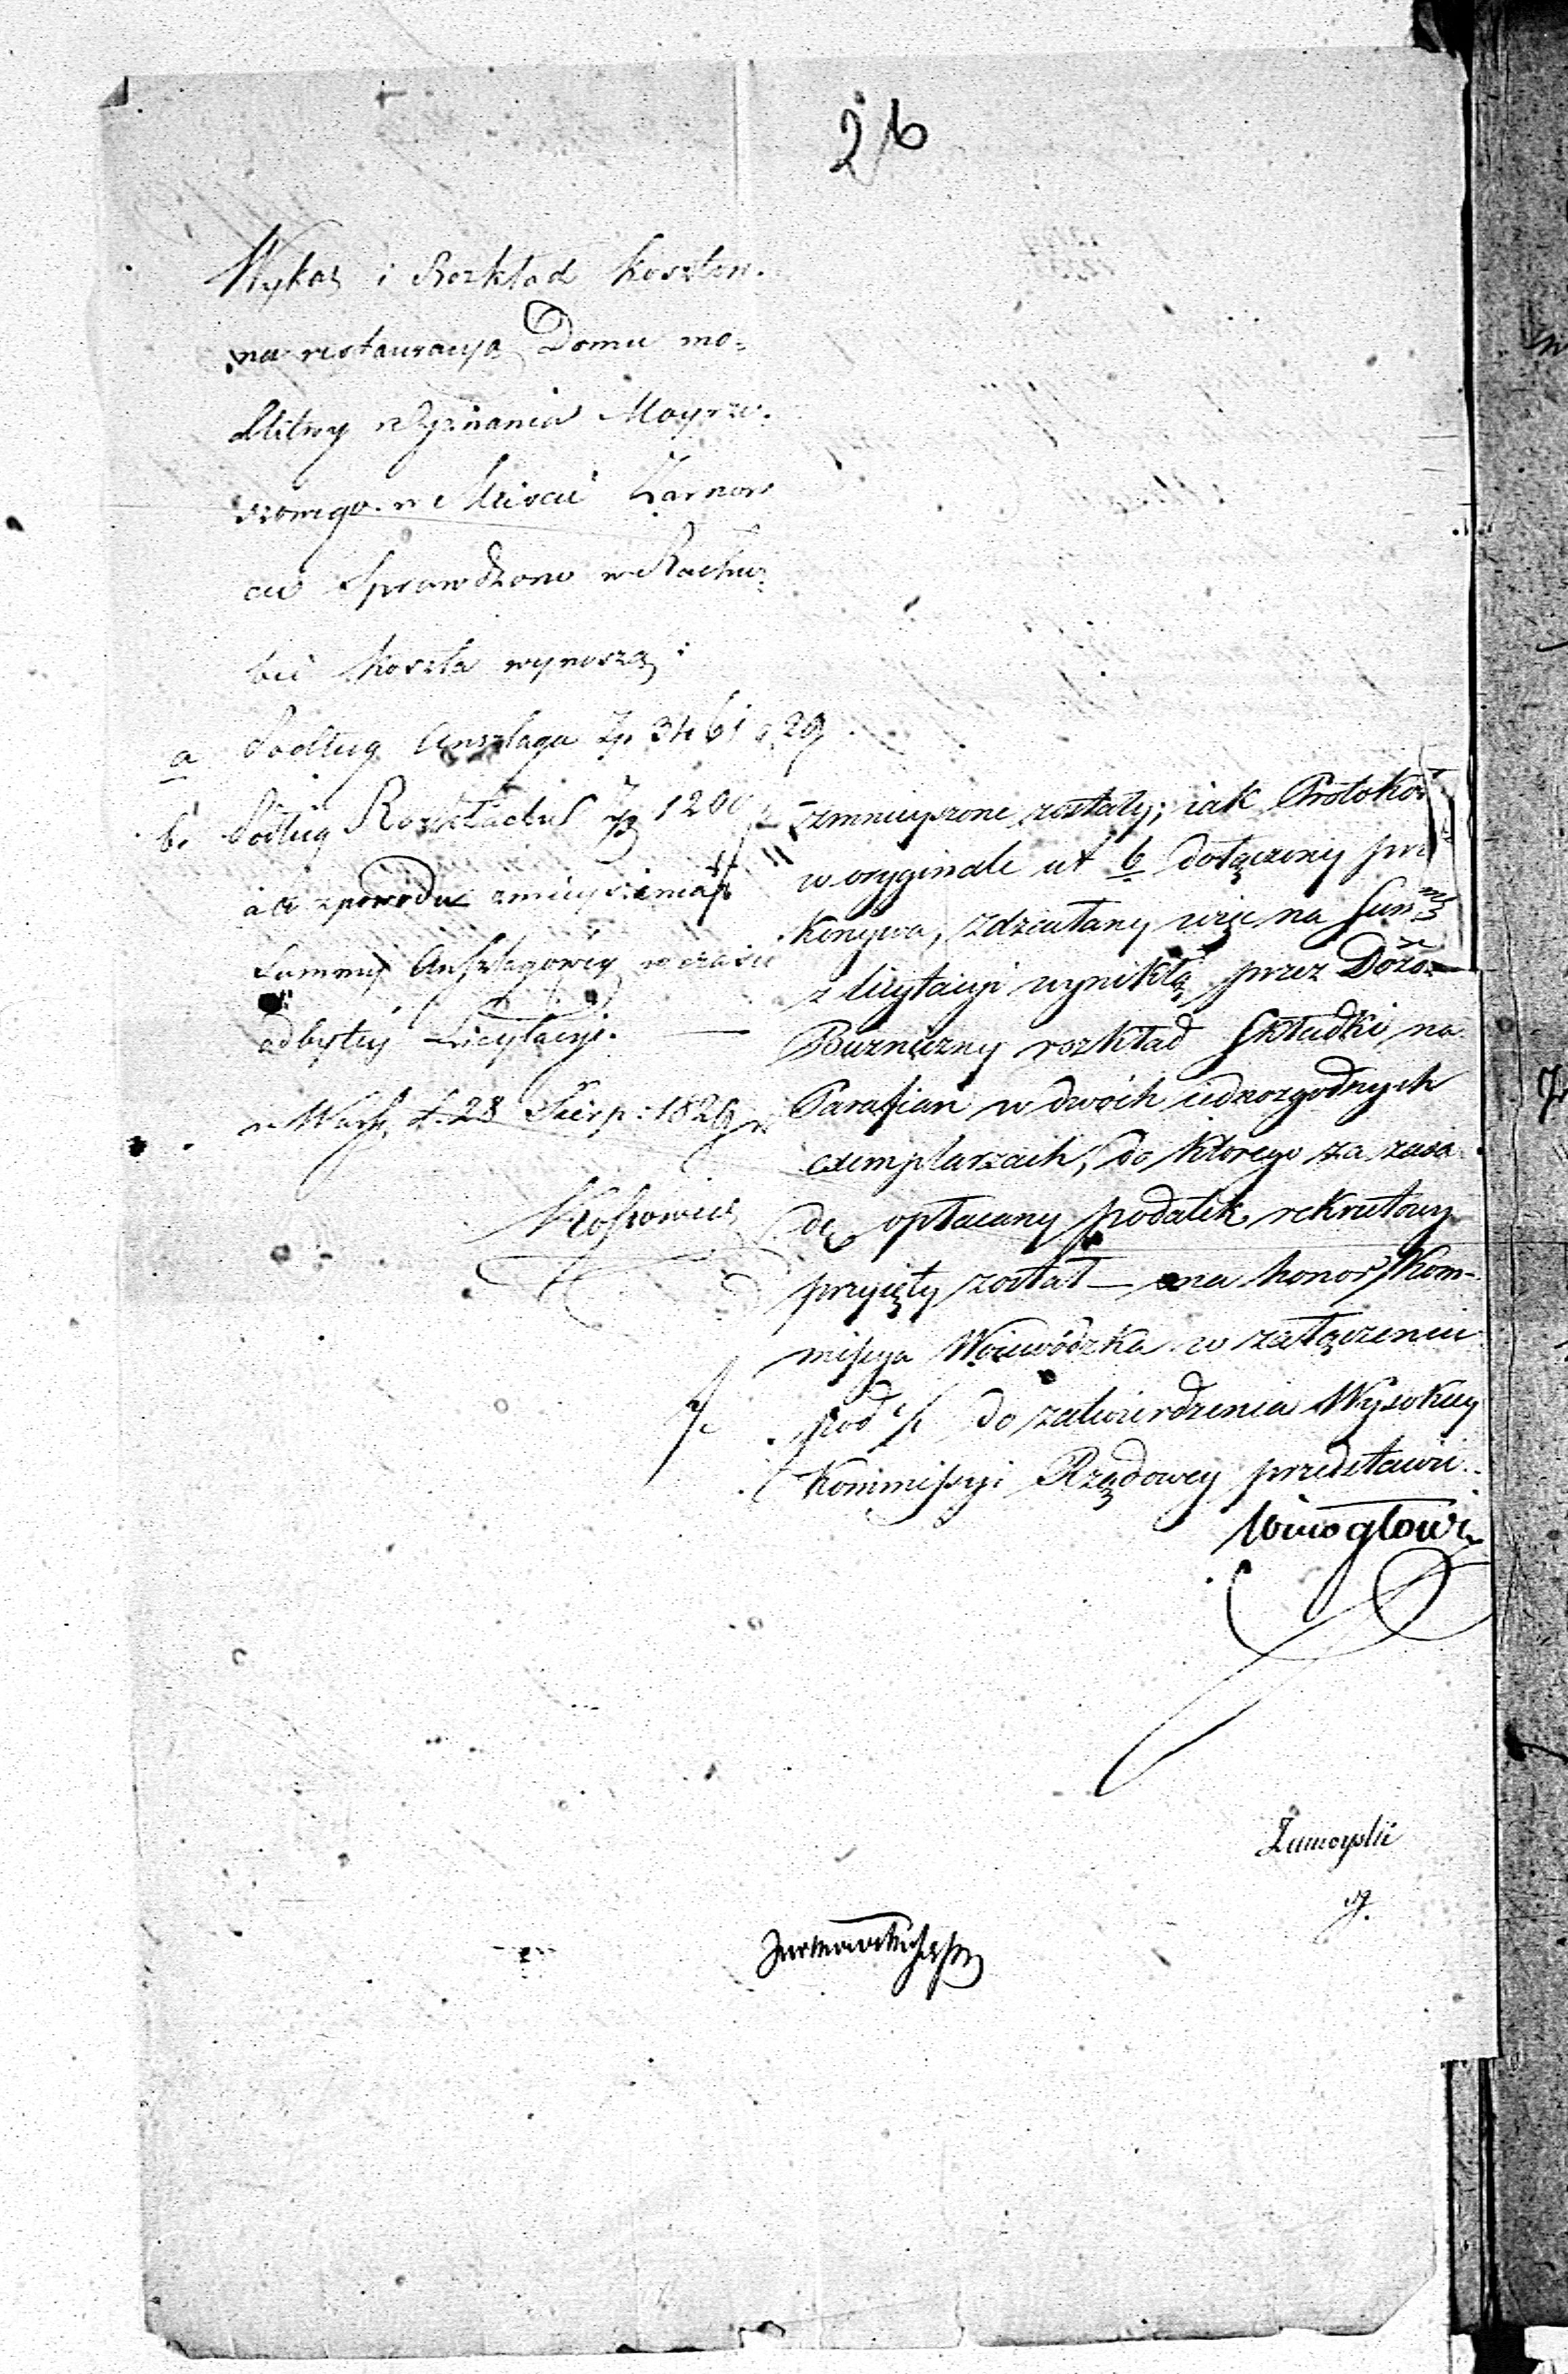 26
Wykaz i Rozkład kosztow
na restauracyą Domu mo=
dlitwy Wyznania Mayże=
szowego w Mieście Żarnow
cu Sprawdzono w Rachu=
bie koszta wynoszą:
a Podług Anszlagu Zp 3461 g 29
b. Podług Rozkładu Zp 1200
a to z powodu zmnieyszenia
Summy Anszlagowey w czasie
odbytey Licytacyi. —
w Warsz. d. 28 Sierp: 1829 r
zmnieyszone zostały; iak Protokół
w oryginale ut b dołączony prze=
konywa, zdziałany więc na Summę
z licytacyi wynikłą przez Dozór
Bużniczny rozkład składki na
Parafian w dwóch iednozgodnych
exemplarzach, do którego za zasa
dę opłacany podatek rekrutowy
przyięty został — ma honor Kom-
missya Woiewódzka w załączeniu
pod ·/. do zatwierdzenia Wysokiey
Kommissyi Rządowey przedstawić.
Wielogłowski
Zamoyski